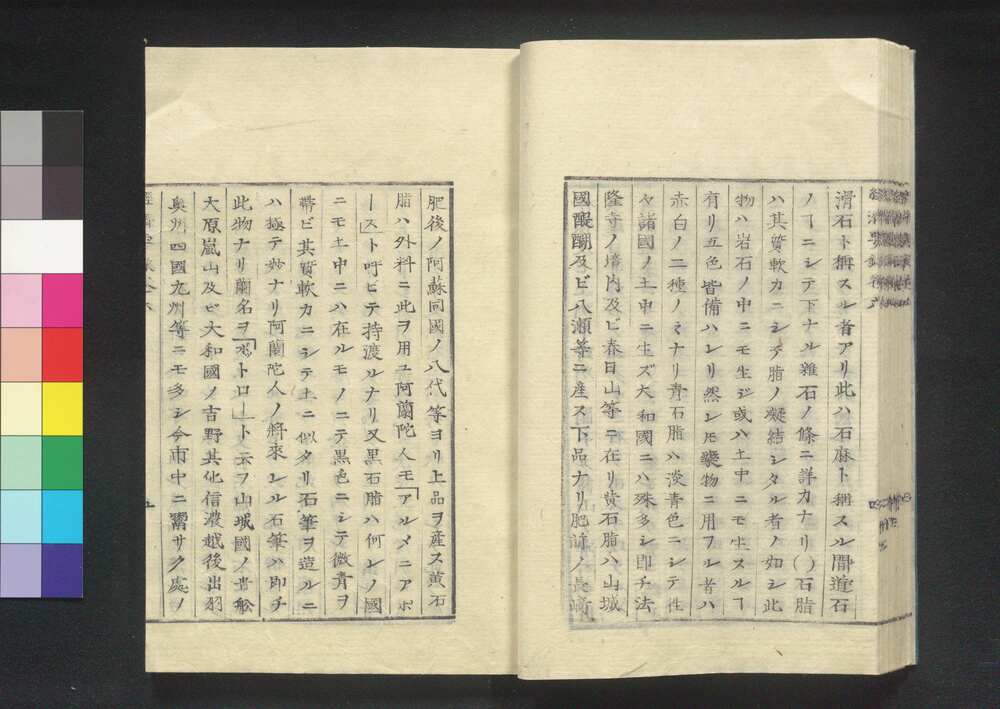 滑石ト稱スル者アリ此ハ石麻ト稱スル間道石
ノ一ニシテ下ナル雜石ノ條ニ詳カナリ(〇)石脂
ハ其質軟カニシテ脂ノ凝結シタル者ノ如シ此
物ハ岩石ノ中ニモ生ジ或ハ土中ニモ生スルヿ
有リ五色皆備ハレリ然レㇳモ藥物ニ用フル者ハ
赤白ノ二種ノミナリ青石脂ハ淡青色ニシテ往
々諸國ノ土中ニ生ズ大和國ニハ殊多シ即チ法
隆寺ノ境内及ビ春日山等ニ在リ黄石脂ハ山城
國醍醐及ビ八瀬等ニ産ス下品ナリ肥前ノ長崎
肥後ノ阿蘇同國ノ八代等ヨリ上品ヲ産ス黄石
脂ハ外料ニ此ヲ用ユ阿蘭陀人モ「アルメニアボ
ース」ト呼ビテ持渡ルナリ又黒石脂ハ何レノ國
ニモ土中ニハ在ルモノニテ黒色ニシテ微青ヲ
帶ビ其質軟カニシテ土ニ似タリ石筆ヲ造ルニ
ハ極テ妙ナリ阿蘭陀人ノ將來レル石筆ハ即チ
此物ナリ蘭名ヲ「ポトロード」ト云フ山城國ノ貴舩
大原嵐山及ビ大和國ノ吉野其他信濃越後出羽
奥州四國九州等ニモ多シ今市中ニ鬻サク處ノ